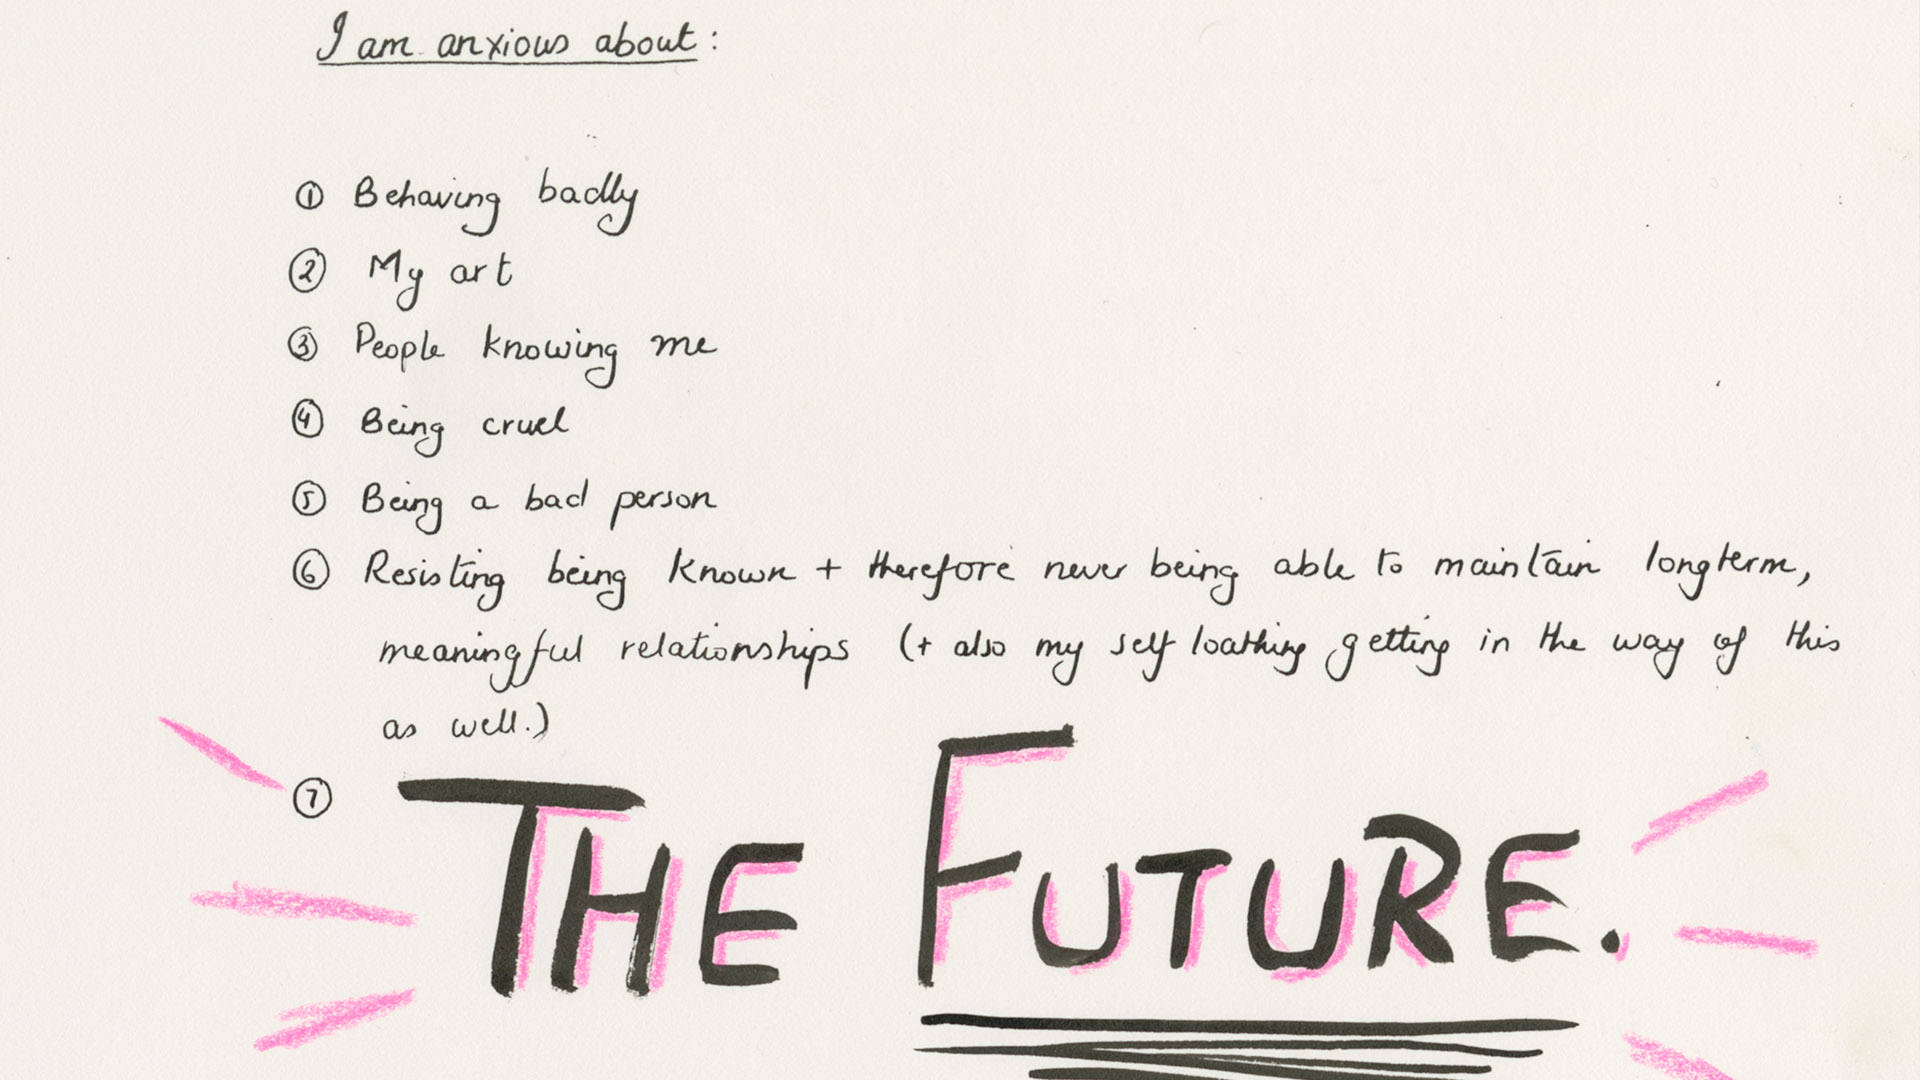 I am anxious about:
① Behaving badly
② My art
③ People knowing me
④ Being cruel
⑤ Being a bad person
⑥ Resisting being known + therefore never being able to maintain longterm,
meaningful relationships (+ also my self loathing getting in the way of this
as well.)
⑦ THE FUTURE.